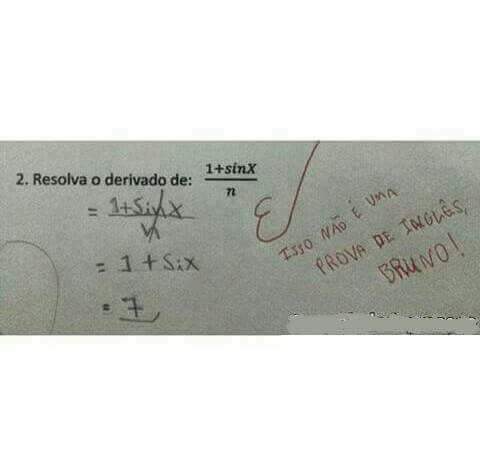 2. Resolva o derivado de: 1+sinX
n
= 1+SinX
n
= 1+Six
= 7
ISSO NÃO É UMA
PROVA DE INGLÊS,
BRUNO!